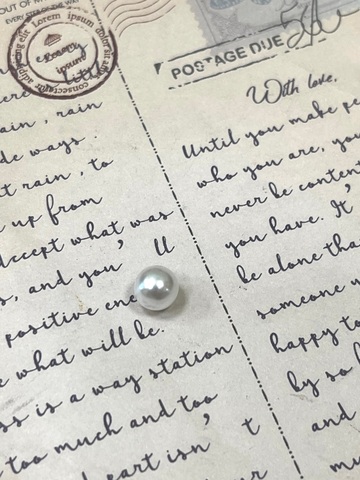 OUT OF M
EVERY STEP OF THE WAY
Lorem ipsum dolor
ipsum
little
POSTAGE DUE
With love,
ain, rain
de ways.
t rain, to
up from
accept what was
s, and you' ll
positive ene
e what will be.
ss is a way station
too much and too
heart isn' t
Until you make pe
who you are, yo
never be conten
you have. It'
be alone tha
someone
happy to
by so
and
mu